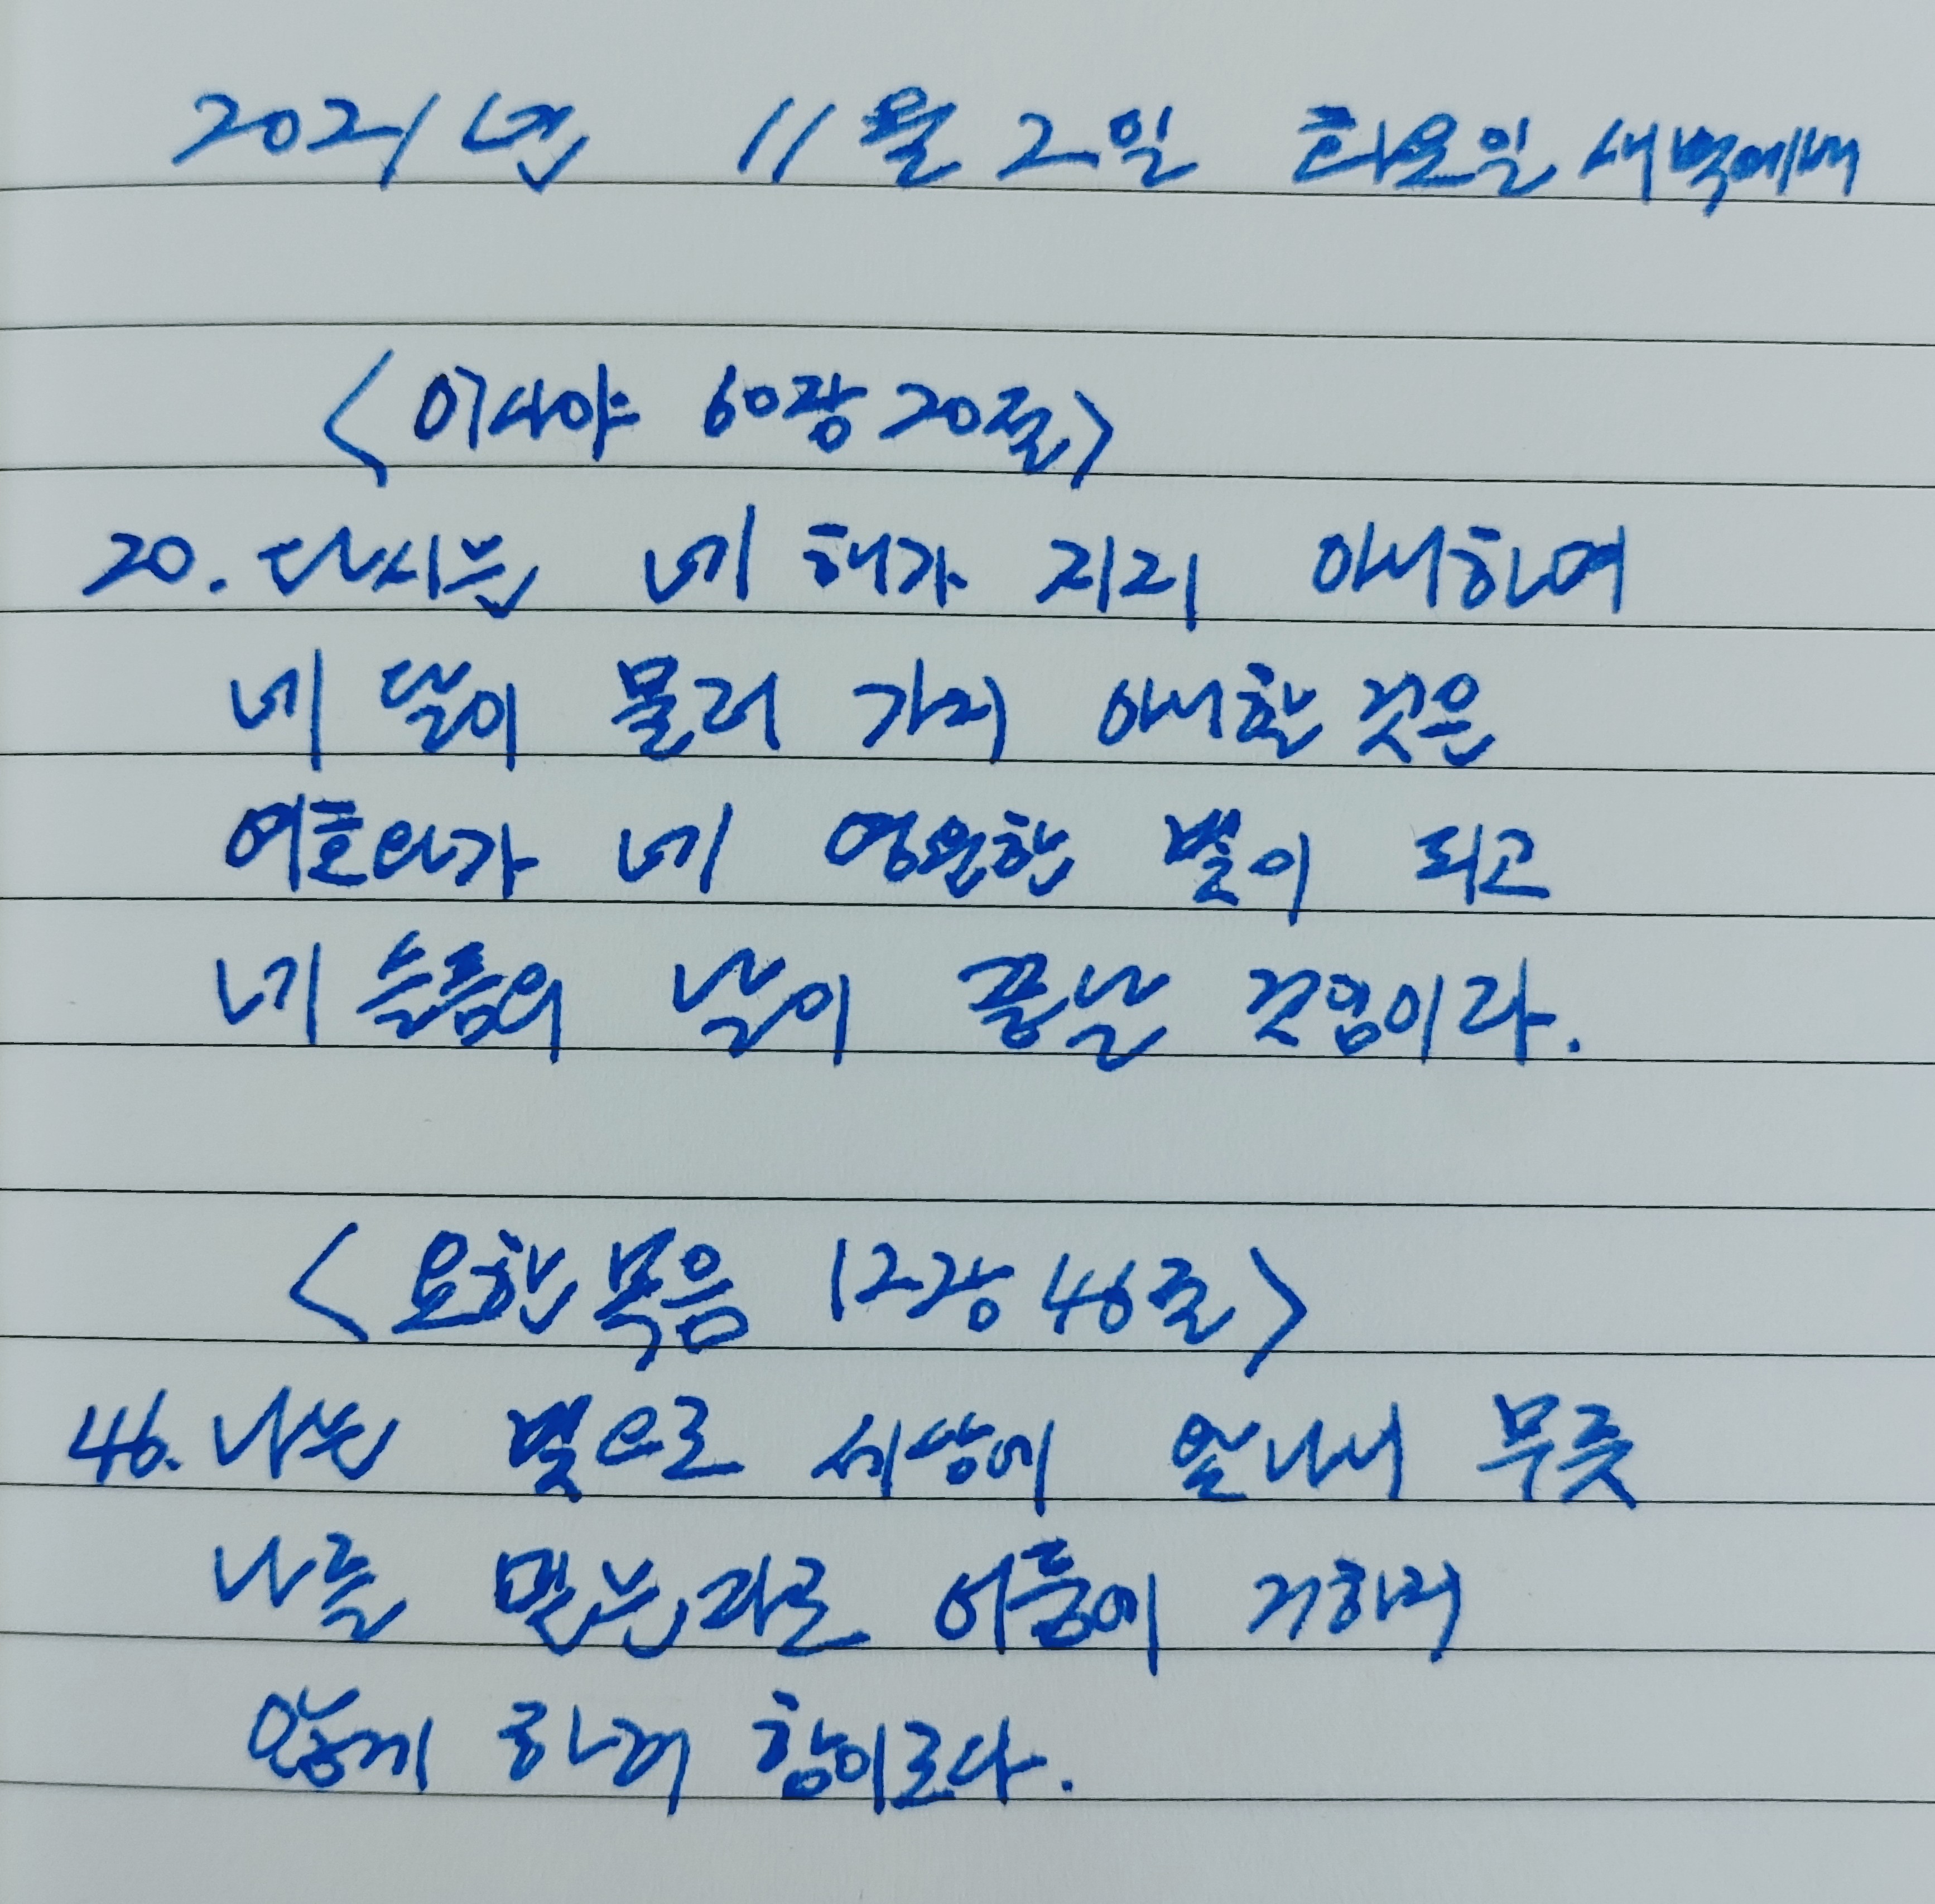 2021년 11월 2일 화요일 새벽예배
<이사야 60장 20절>
20. 다시는 네 해가 지지 아니하며
네 달이 물러 가지 아니할 것은
여호와가 네 영원한 빛이 되고
네 슬픔의 날이 끝날 것임이라.
<요한복음 12장 46절>
46. 나는 빛으로 세상에 왔나니 무릇
나를 믿는 자로 어둠에 거하지
않게 하려 함이로다.